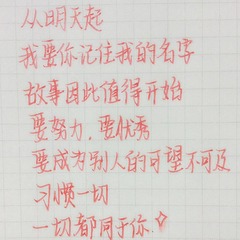 从明天起
我要你记住我的名字
故事因此值得开始
要努力,要优秀
要成为别人的可望不可及
习惯一切
一切都同于你.